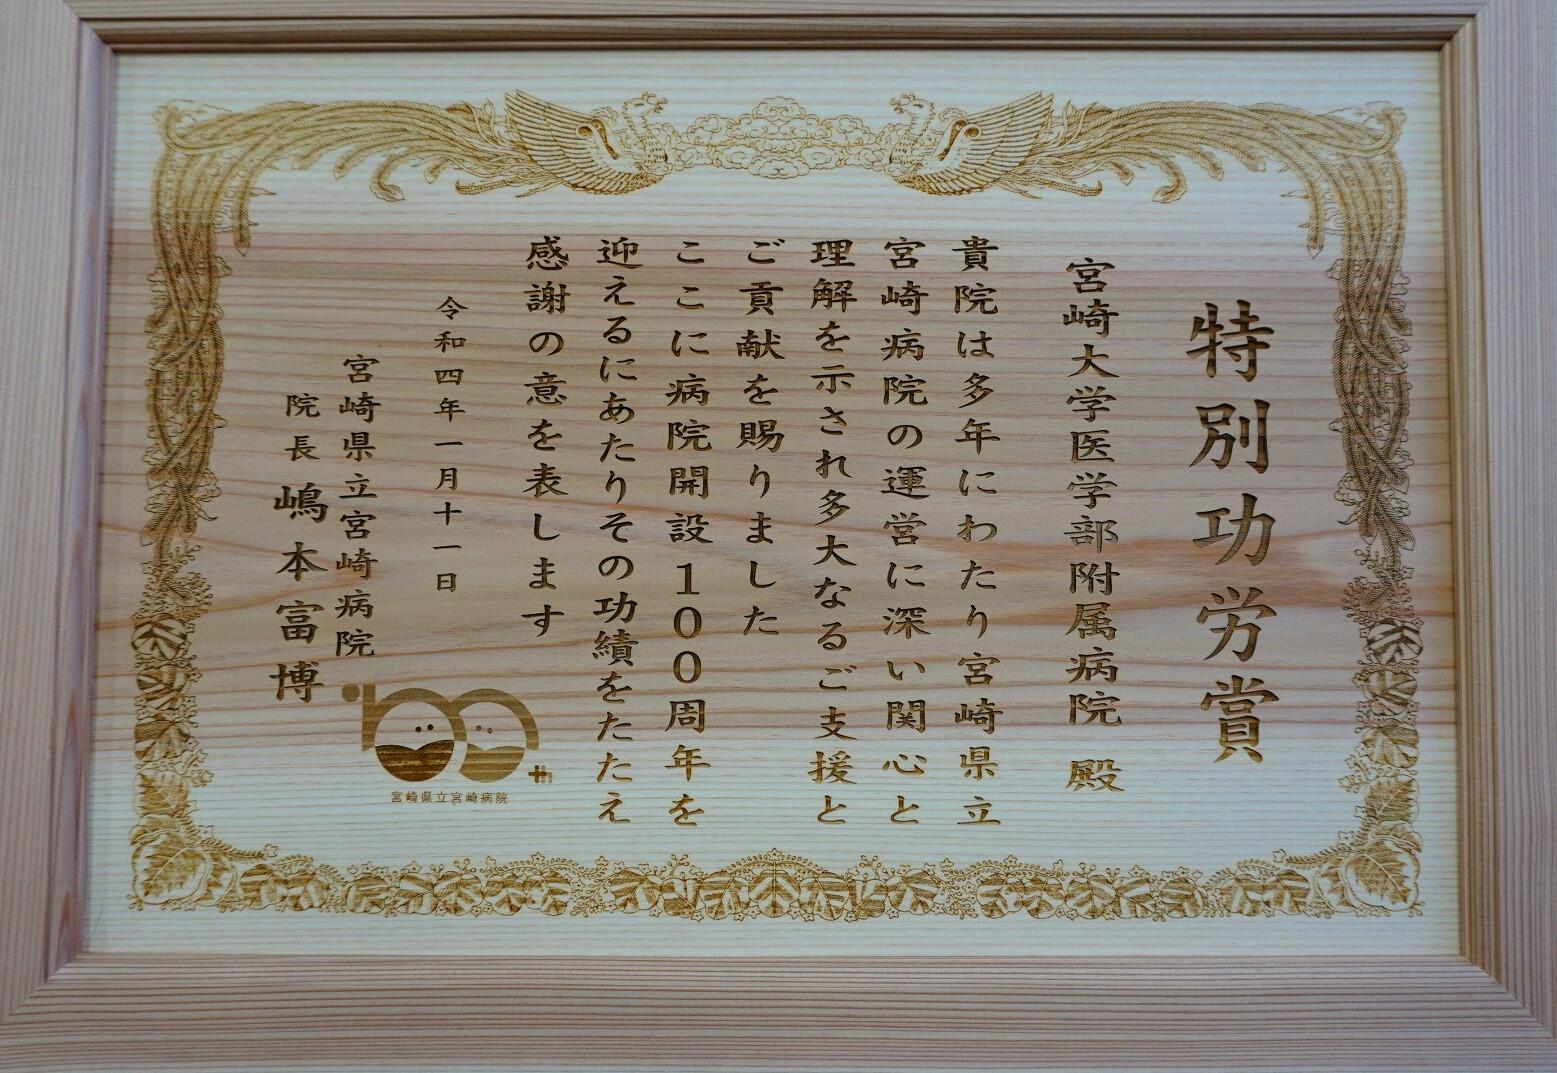 特別功労賞
宮崎大学医学部附属病院 殿
貴院は多年にわたり宮崎県立
宮崎病院の運営に深い関心と
理解を示され多大なるご支援と
ご貢献を賜りました
ここに病院開設100周年を
迎えるにあたりその功績をたたえ
感謝の意を表します
令和四年一月十一日
宮崎県立宮崎病院
院長 嶋本富博
100th
宮崎県立宮崎病院